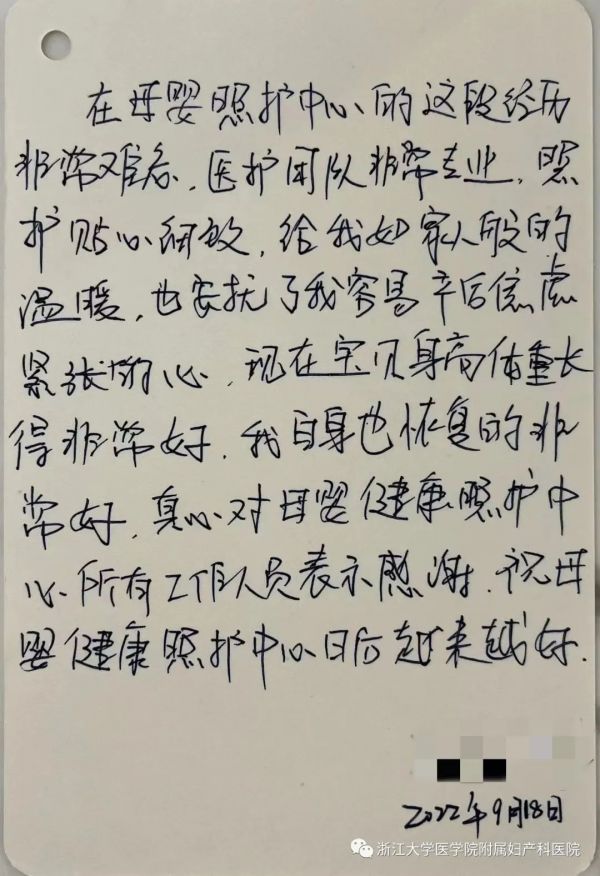 在母婴照护中心的这段经历
非常难忘，医护团队非常专业，照
护贴心细致，给我如家人般的
温暖，也安抚了我容易产后焦虑
紧张的心，现在宝贝身高体重长
得非常好，我自身也恢复的非
常好，真心对母婴健康照护中
心所有工作人员表示感谢，祝母
婴健康照护中心日后越来越好．
2022年9月18日
浙江大学医学院附属妇产科医院